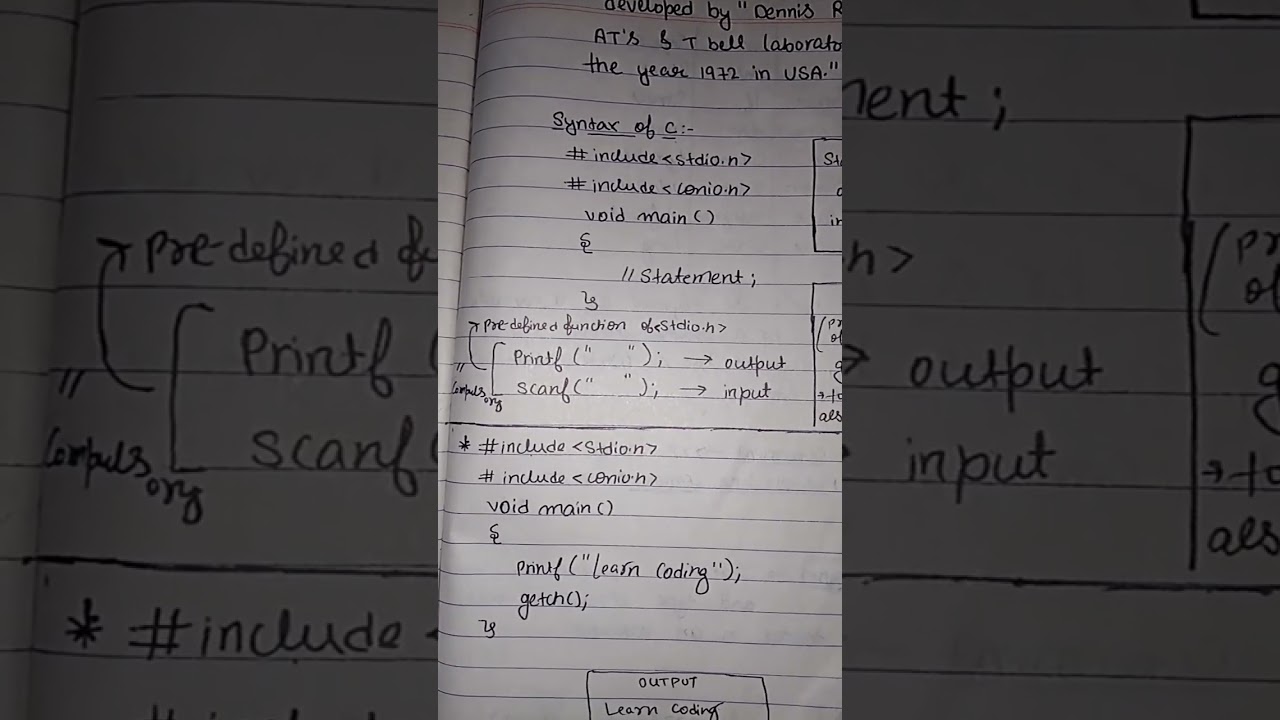 developed by "Dennis R
AT's & T bell laborato
the year 1972 in USA."
Syntax of C:-
#include<stdio.h>
#include<conio.h>
void main()
{
// Statement;
}
pre-defined function of<stdio.h>
printf(" "); → output
scanf(" "); → input
// Compulsory
* #include <stdio.h>
# include <conio.h>
void main()
{
printf("Learn Coding");
getch();
}
OUTPUT
Learn Coding